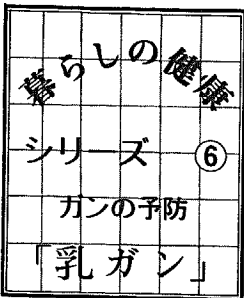 暮らしの健康
シリーズ ⑥
ガンの予防
「乳ガン」